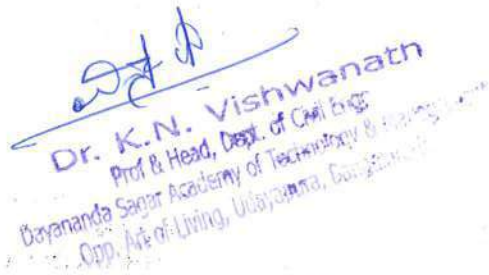 Dr. K.N. Vishwanath
Prof & Head, Dept. of Civil Engg
Dayananda Sagar Academy of Technology &
Opp. Art of Living, Udayapura,